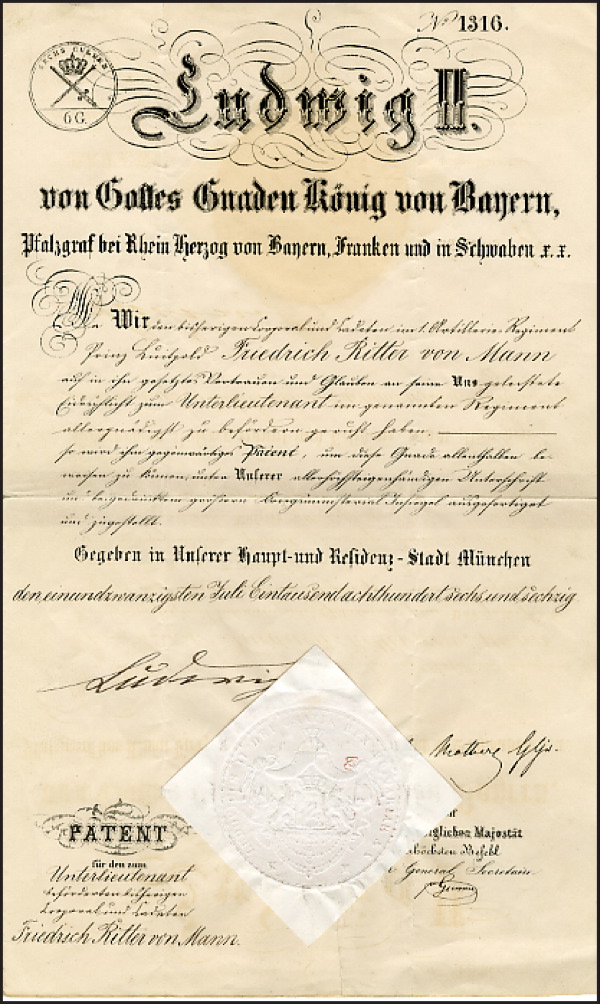 No 1316.
SECHS GULDEN
6 G.
Ludwig II.
von Gottes Gnaden König von Bayern,
Pfalzgraf bei Rhein Herzog von Bayern, Franken und in Schwaben x.x.
Wir den bisherigen Corporal und Cadeten im 1. Artillerie-Regiment
Prinz Luitpold Friedrich Ritter von Mann
auf in ihn gesetztes Vertrauen und Glauben an seine Uns geleistete
zum Unterlieutenant im genannten Regiment
allergnädigst zu befördern geruht haben.
so wird ihm gegenwärtiges Patent, um diese Gnade allenthalben be-
weisen zu können, unter Unserer allerhöchsteigenhändigen Unterschrift
und beigedrucktem größern Insiegel ausgefertiget
und zugestellt.
Gegeben in Unserer Haupt- und Residenz-Stadt München
den, einundzwanzigsten Juli Eintausend achthundert sechs und sechzig
Ludwig
PATENT
für den zum
Unterlieutenant
beförderten bisherigen
Corporal und Cadeten
Friedrich Ritter von Mann.
niglichen Majestät
höchsten Befehl
General Secretaire